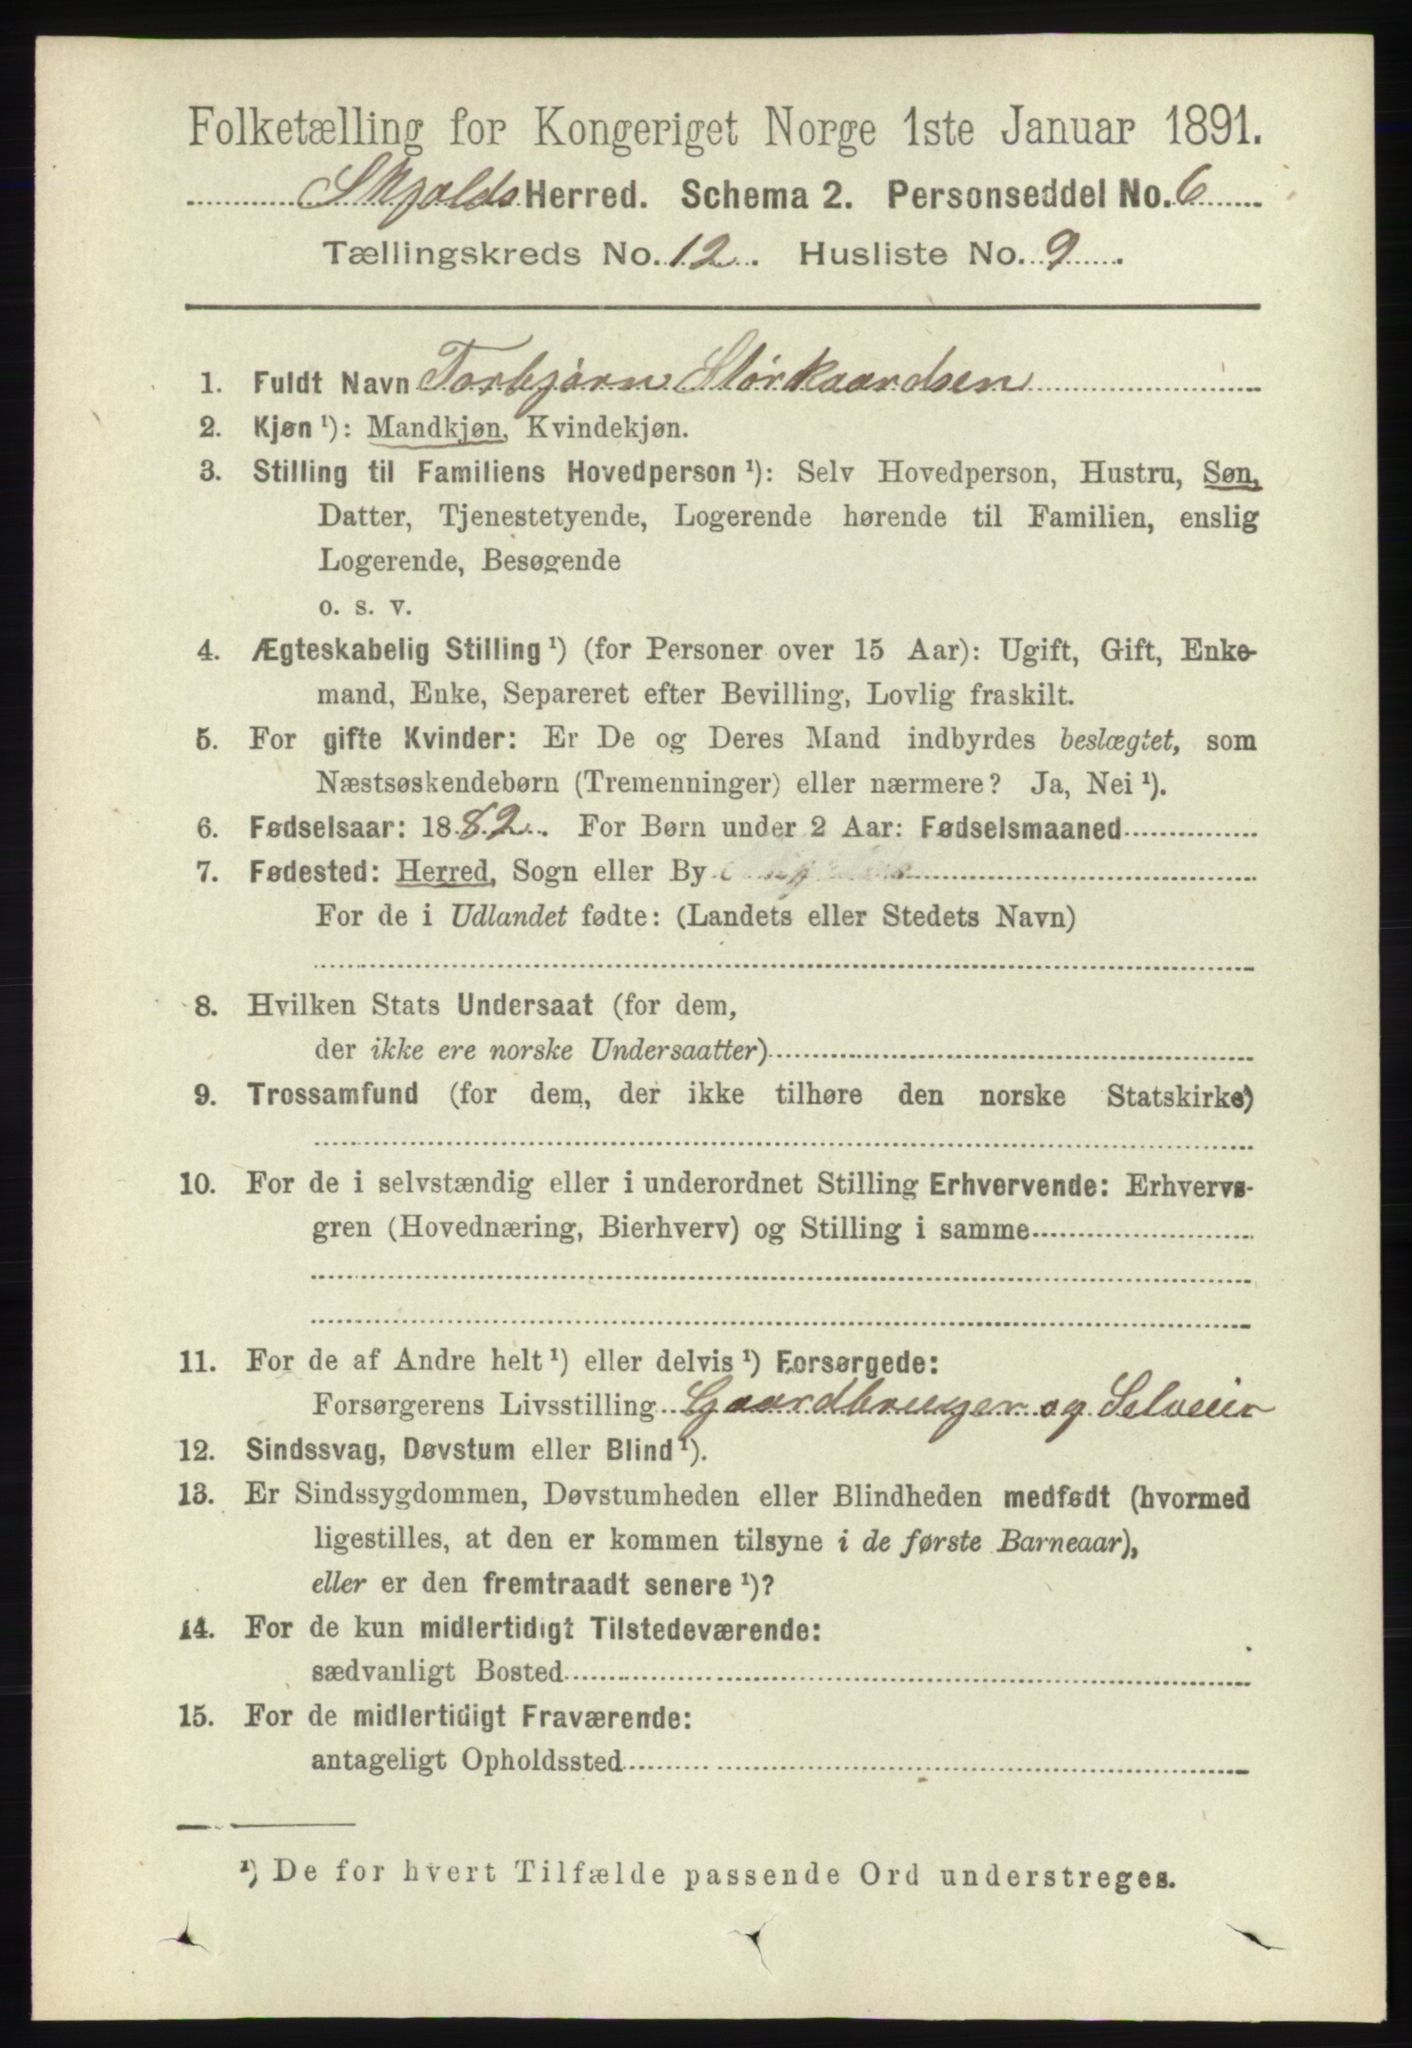 Folketælling for Kongeriget Norge 1ste Januar 1891.
Skjolds Herred. Schema 2. Personseddel No. 6
Tællingskreds No. 12. Husliste No. 9.
1. Fuldt Navn Torbjørn Størkaardsen
2. Kjøn ¹): Mandkjøn, Kvindekjøn.
3. Stilling til Familiens Hovedperson ¹): Selv Hovedperson, Hustru, Søn,
Datter, Tjenestetyende, Logerende hørende til Familien, enslig
Logerende, Besøgende
o. s. v.
4. Ægteskabelig Stilling ¹) (for Personer over 15 Aar): Ugift, Gift, Enke-
mand, Enke, Separeret efter Bevilling, Lovlig fraskilt.
5. For gifte Kvinder: Er De og Deres Mand indbyrdes beslægtet, som
Næstsøskendebørn (Tremenninger) eller nærmere? Ja, Nei ¹).
6. Fødselsaar: 1882. For Børn under 2 Aar: Fødselsmaaned
7. Fødested: Herred, Sogn eller By
For de i Udlandet fødte: (Landets eller Stedets Navn)
8. Hvilken Stats Undersaat (for dem,
der ikke ere norske Undersaatter)
9. Trossamfund (for dem, der ikke tilhøre den norske Statskirke)
10. For de i selvstændig eller i underordnet Stilling Erhvervende: Erhvervs-
gren (Hovednæring, Bierhverv) og Stilling i samme
11. For de af Andre helt ¹) eller delvis ¹) Forsørgede:
Forsørgerens Livsstilling Gaardbruger og Selveier
12. Sindssvag, Døvstum eller Blind ¹).
13. Er Sindssygdommen, Døvstumheden eller Blindheden medfødt (hvormed
ligestilles, at den er kommen tilsyne i de første Barneaar),
eller er den fremtraadt senere ¹)?
14. For de kun midlertidigt Tilstedeværende:
sædvanligt Bosted
15. For de midlertidigt Fraværende:
antageligt Opholdssted
¹) De for hvert Tilfælde passende Ord understreges.